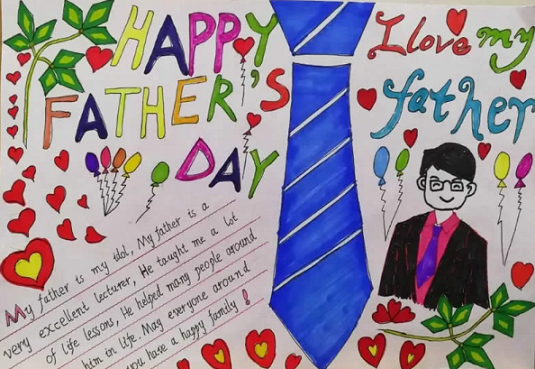 HAPPY
FATHER'S
DAY
I love my
father
My father is my idol, My father is a
very excellent lecturer, He taught me a lot
of life lessons, He helped many people around
him in life. May everyone around
you have a happy family!